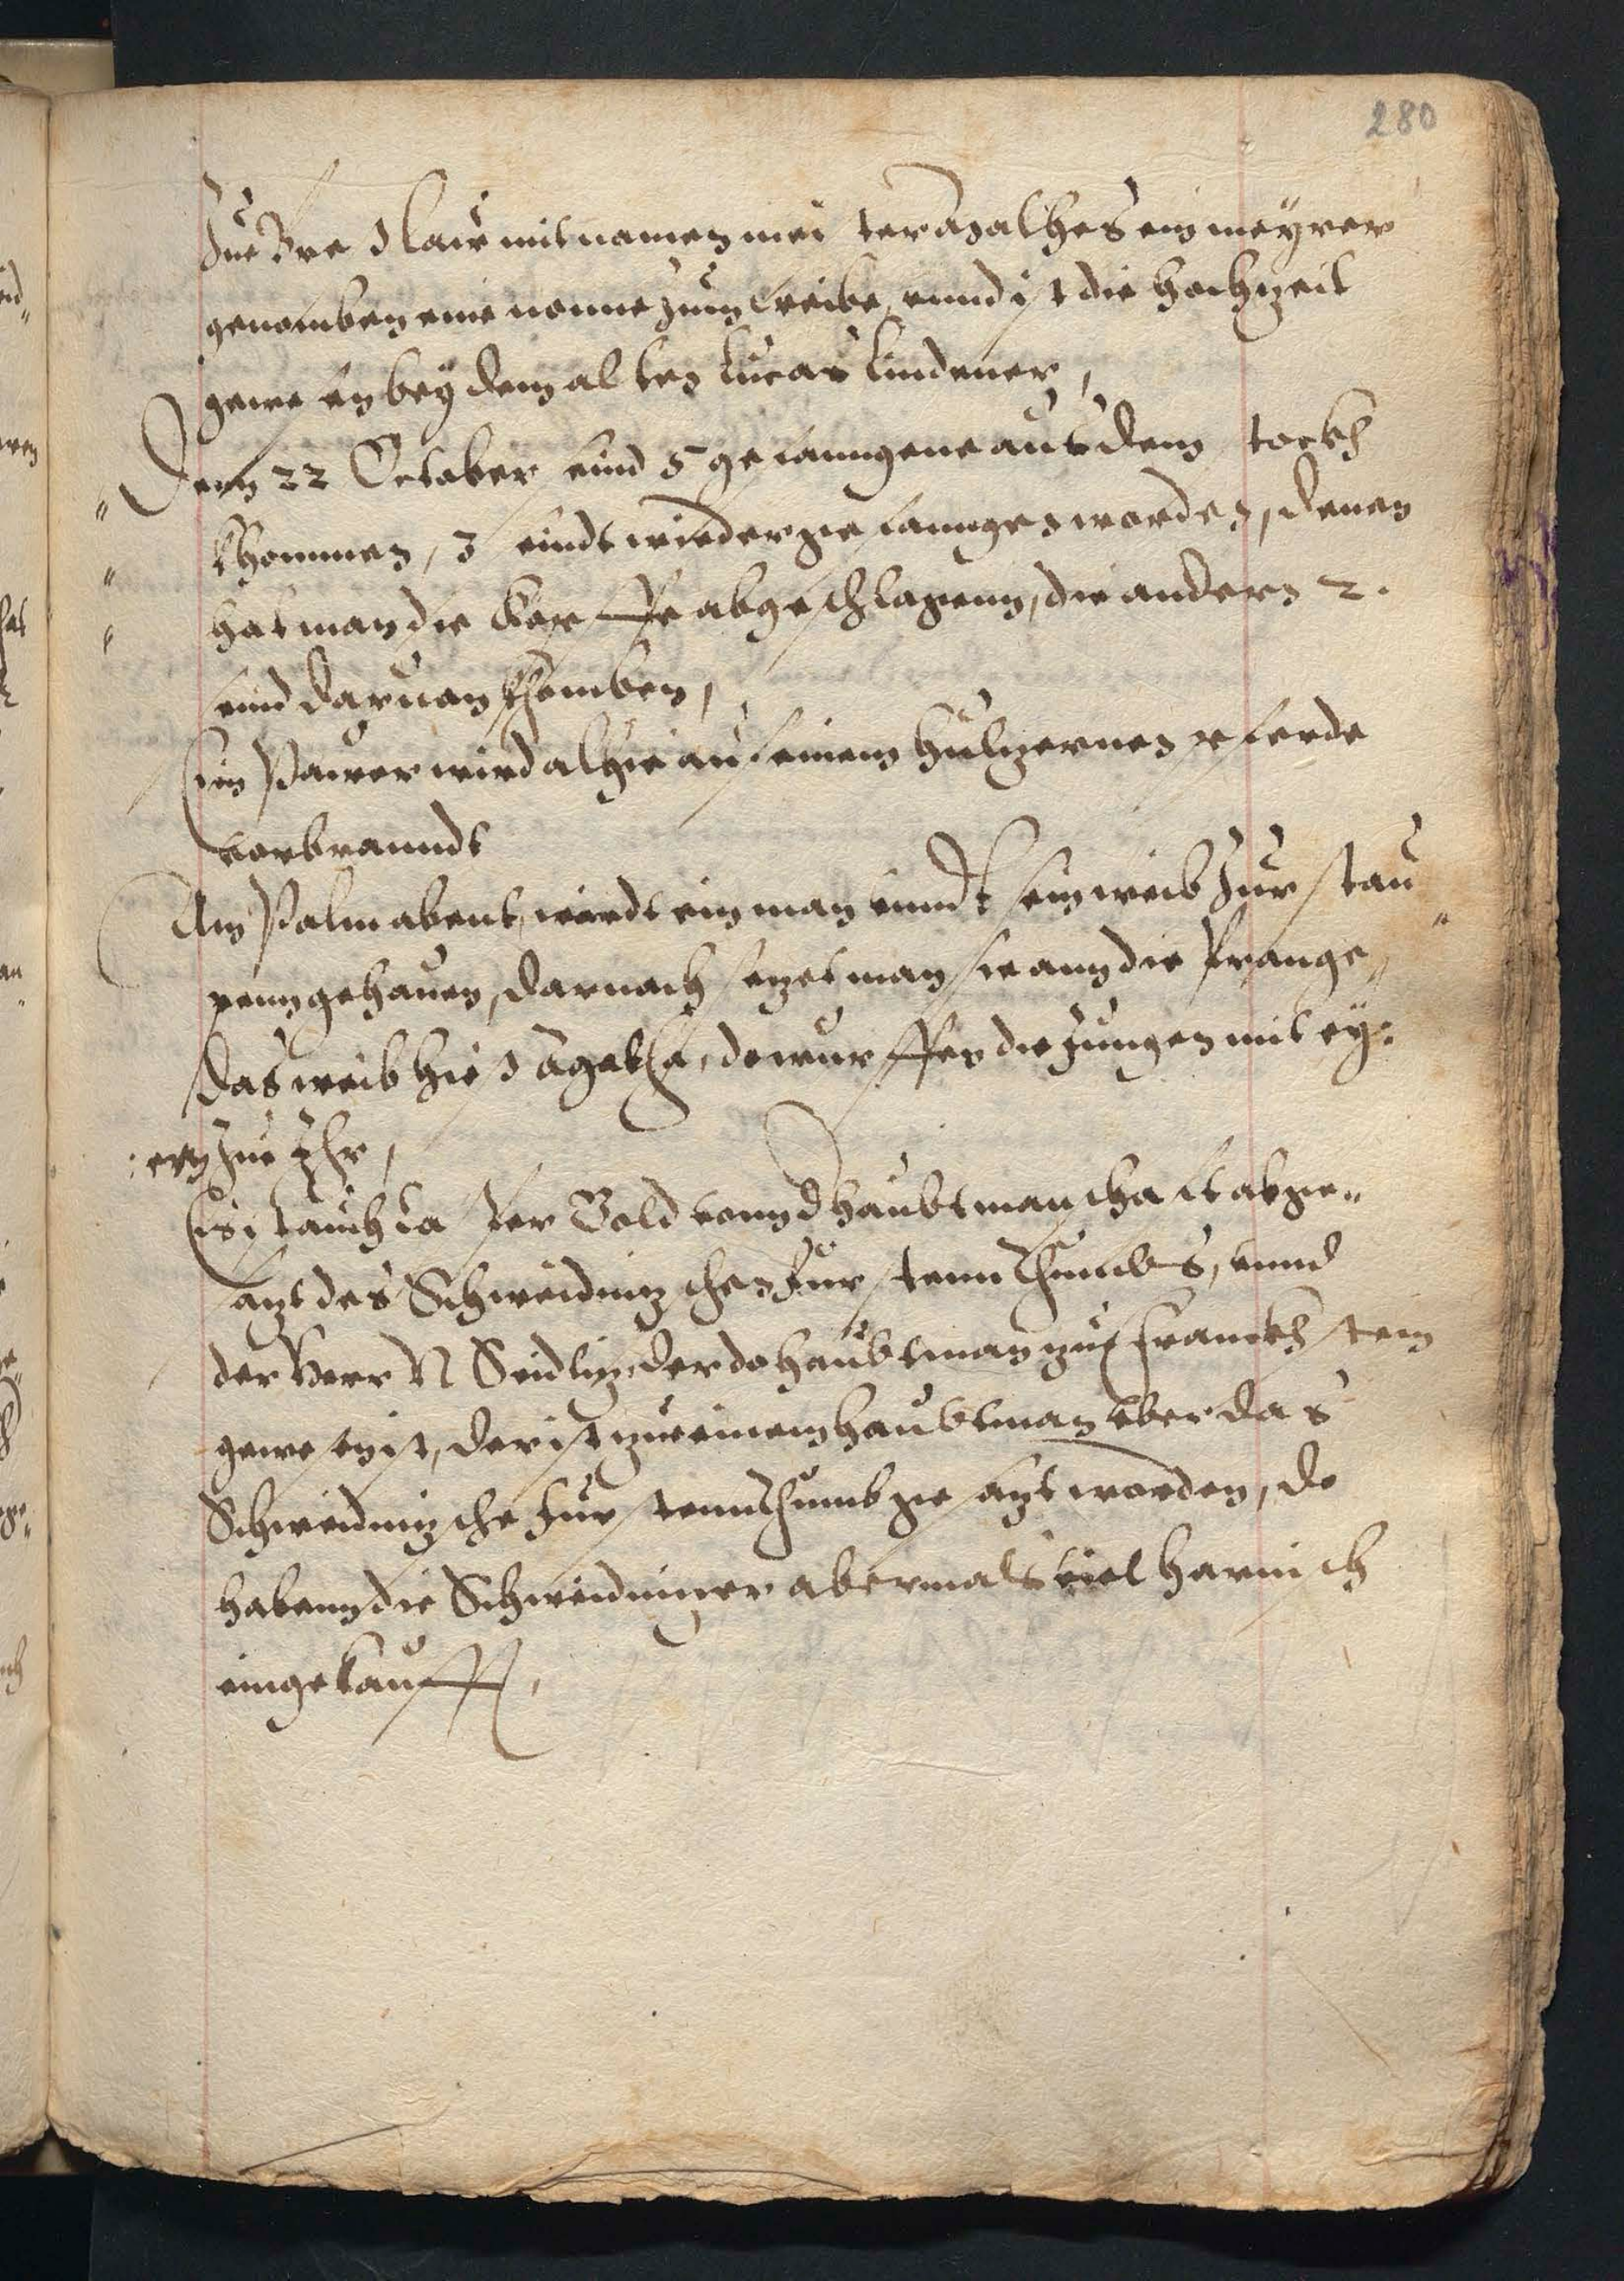 280
Zue Breslaw mit namen meister Agatheß ein meyrer
genomben eine nonne zum weibe, vnnd ist die hochzeit
gewesen bey dem alten Lucas Lindener,
Denn 22 October sind 5 gefanngene aus dem stockh
khommen, 3 sindt wieder gefanngen worden, denen
hat man die koepffe abgeschlagenn, die andern 2.
sind daruon khomben,
Ein Pawer wird alhie auf einem hültzernen pferde
vorbranndt
Am Palmabent, wirdt ein man vnndt sein weib zur stau"
penn gehauen, darnach setzet man sie ann die Prange"
das weib hieß Agatha, do wurffen die Jungen mit ey:
:ern zue Ihr,
Es ist auch Caspar Gold vonn d haubtmanschaft abge"
satzt des Schweidnizschen Fürstennthumbs, vnnd
der Herr N Seidliz, der do haubtman zue Franckhstein
gewesen ist, der ist zu einem haubtman vber das
Schweidnizsche Furstennthumb gesatzt worden, do
habenn die Schweidnizer abermals viel harnisch
eingekaufft,